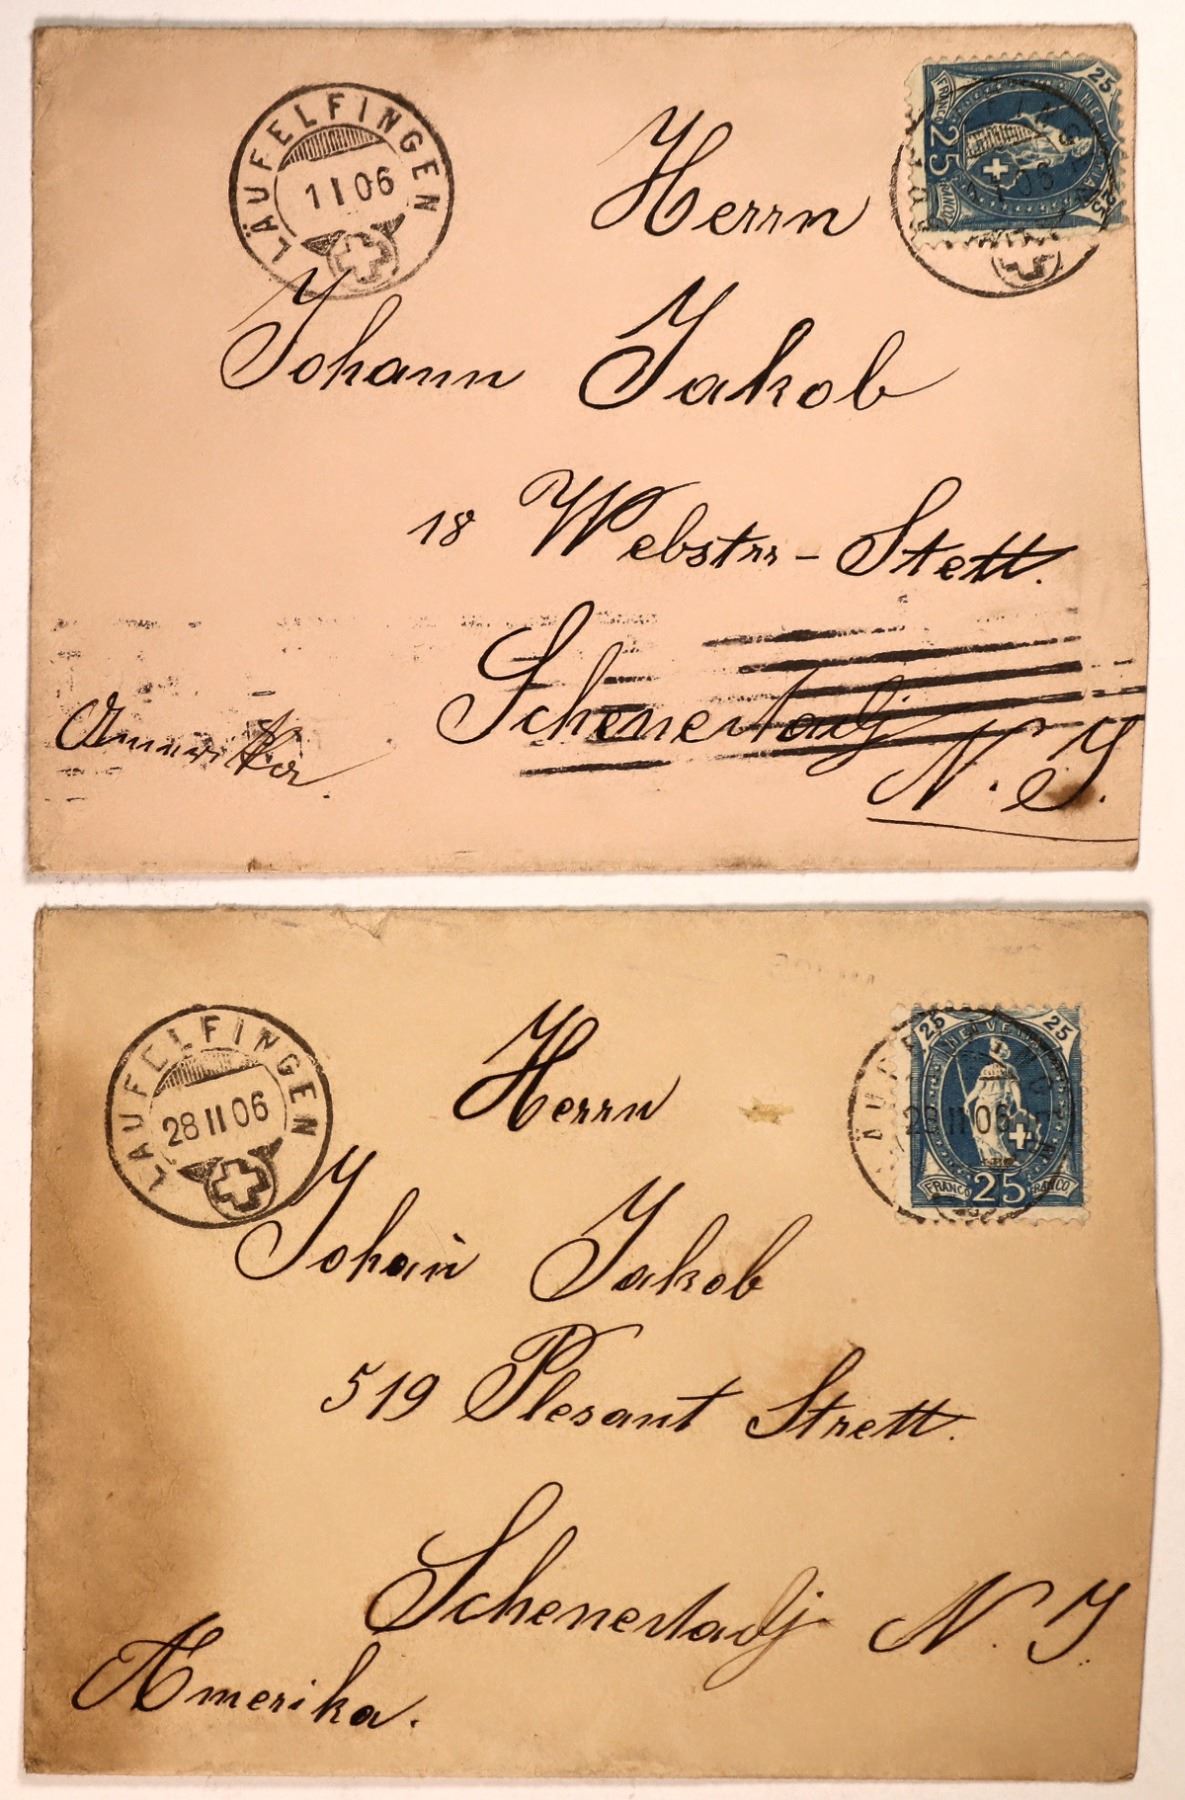 LÄUFELFINGEN
1 I 06
25
FRANCO 25
25
Herrn
Johann Jakob
18 Webstrr - Stett.
Schenectadj
N. Y.
Amerika.
LÄUFELFINGEN
28 II 06
25 HELVETIA 25
28 II 06
FRANCO 25 FRANCO
Herrn
Johan Jakob
519 Plesant Strett.
Schenectadj N. Y.
Amerika.